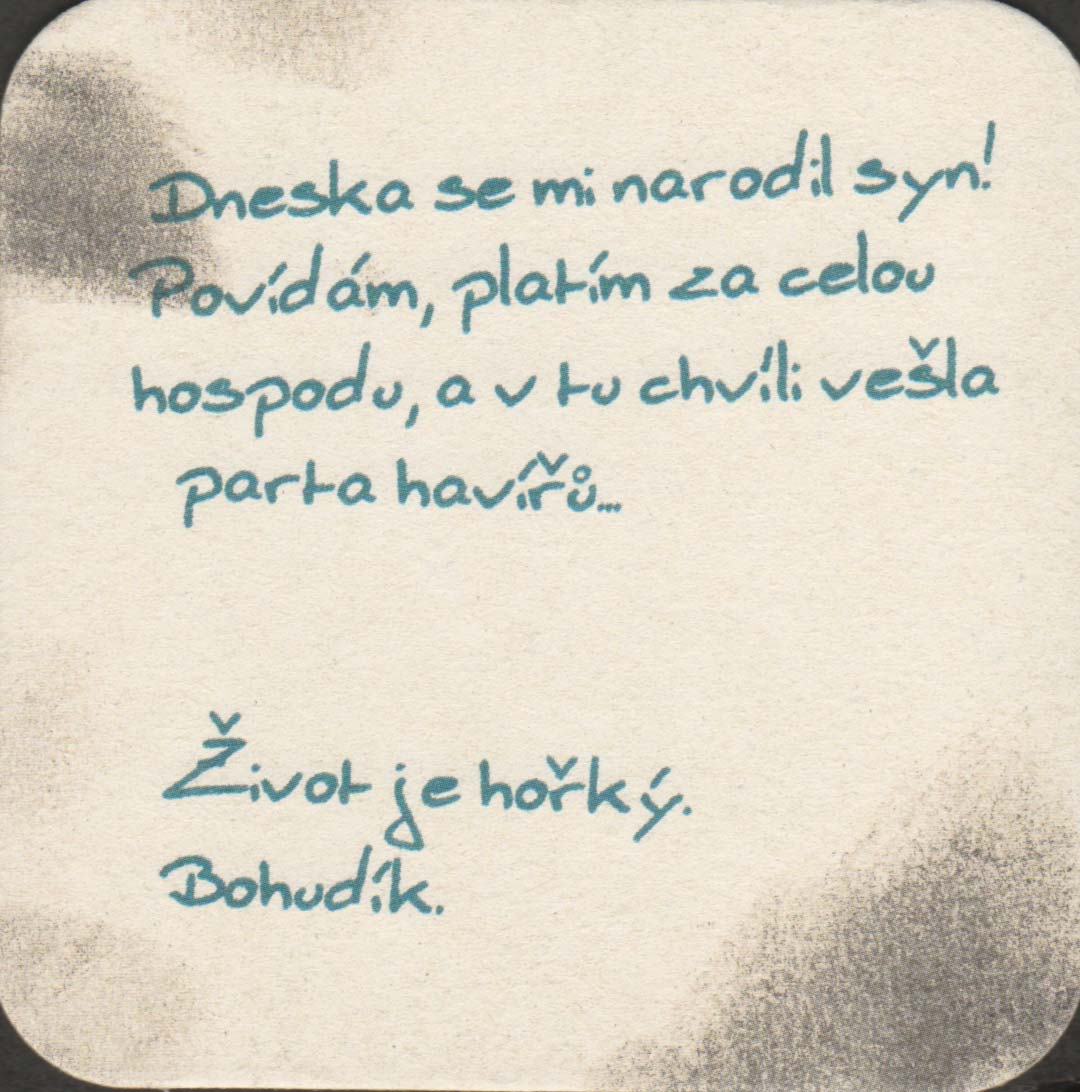 Dneska se mi narodil syn!
Povídám, platím za celou
hospodu, a v tu chvíli vešla
parta havířů...
Život je hořký.
Bohudík.